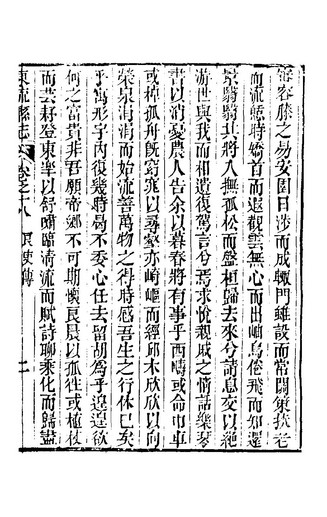 審容膝之易安園日涉而成趣門雖設而常關策扶老
而流憩時矯首而遐觀雲無心而出岫鳥倦飛而知還
景翳翳其將入撫孤松而盤桓歸去來兮請息交以絕
游世與我而相遺復駕言兮焉求悅親戚之情話樂琴
書以消憂農人告余以暮春將有事乎西疇或命巾車
或棹孤舟既窈窕以尋壑亦崎嶇而經邱木欣欣以向
榮泉涓涓而始流善萬物之得時感吾生之行休已矣
乎寓形宇內復幾時曷不委心任去留胡為乎遑遑欲
何之富貴非吾願帝鄉不可期懷良晨以孤往或植杖
而芸耔登東皋以舒嘯臨清流而賦詩聊乘化而歸盡
東流縣志 卷之十八 傳 二